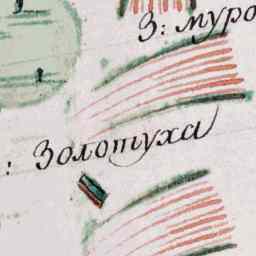 З: муро
: Золотуха